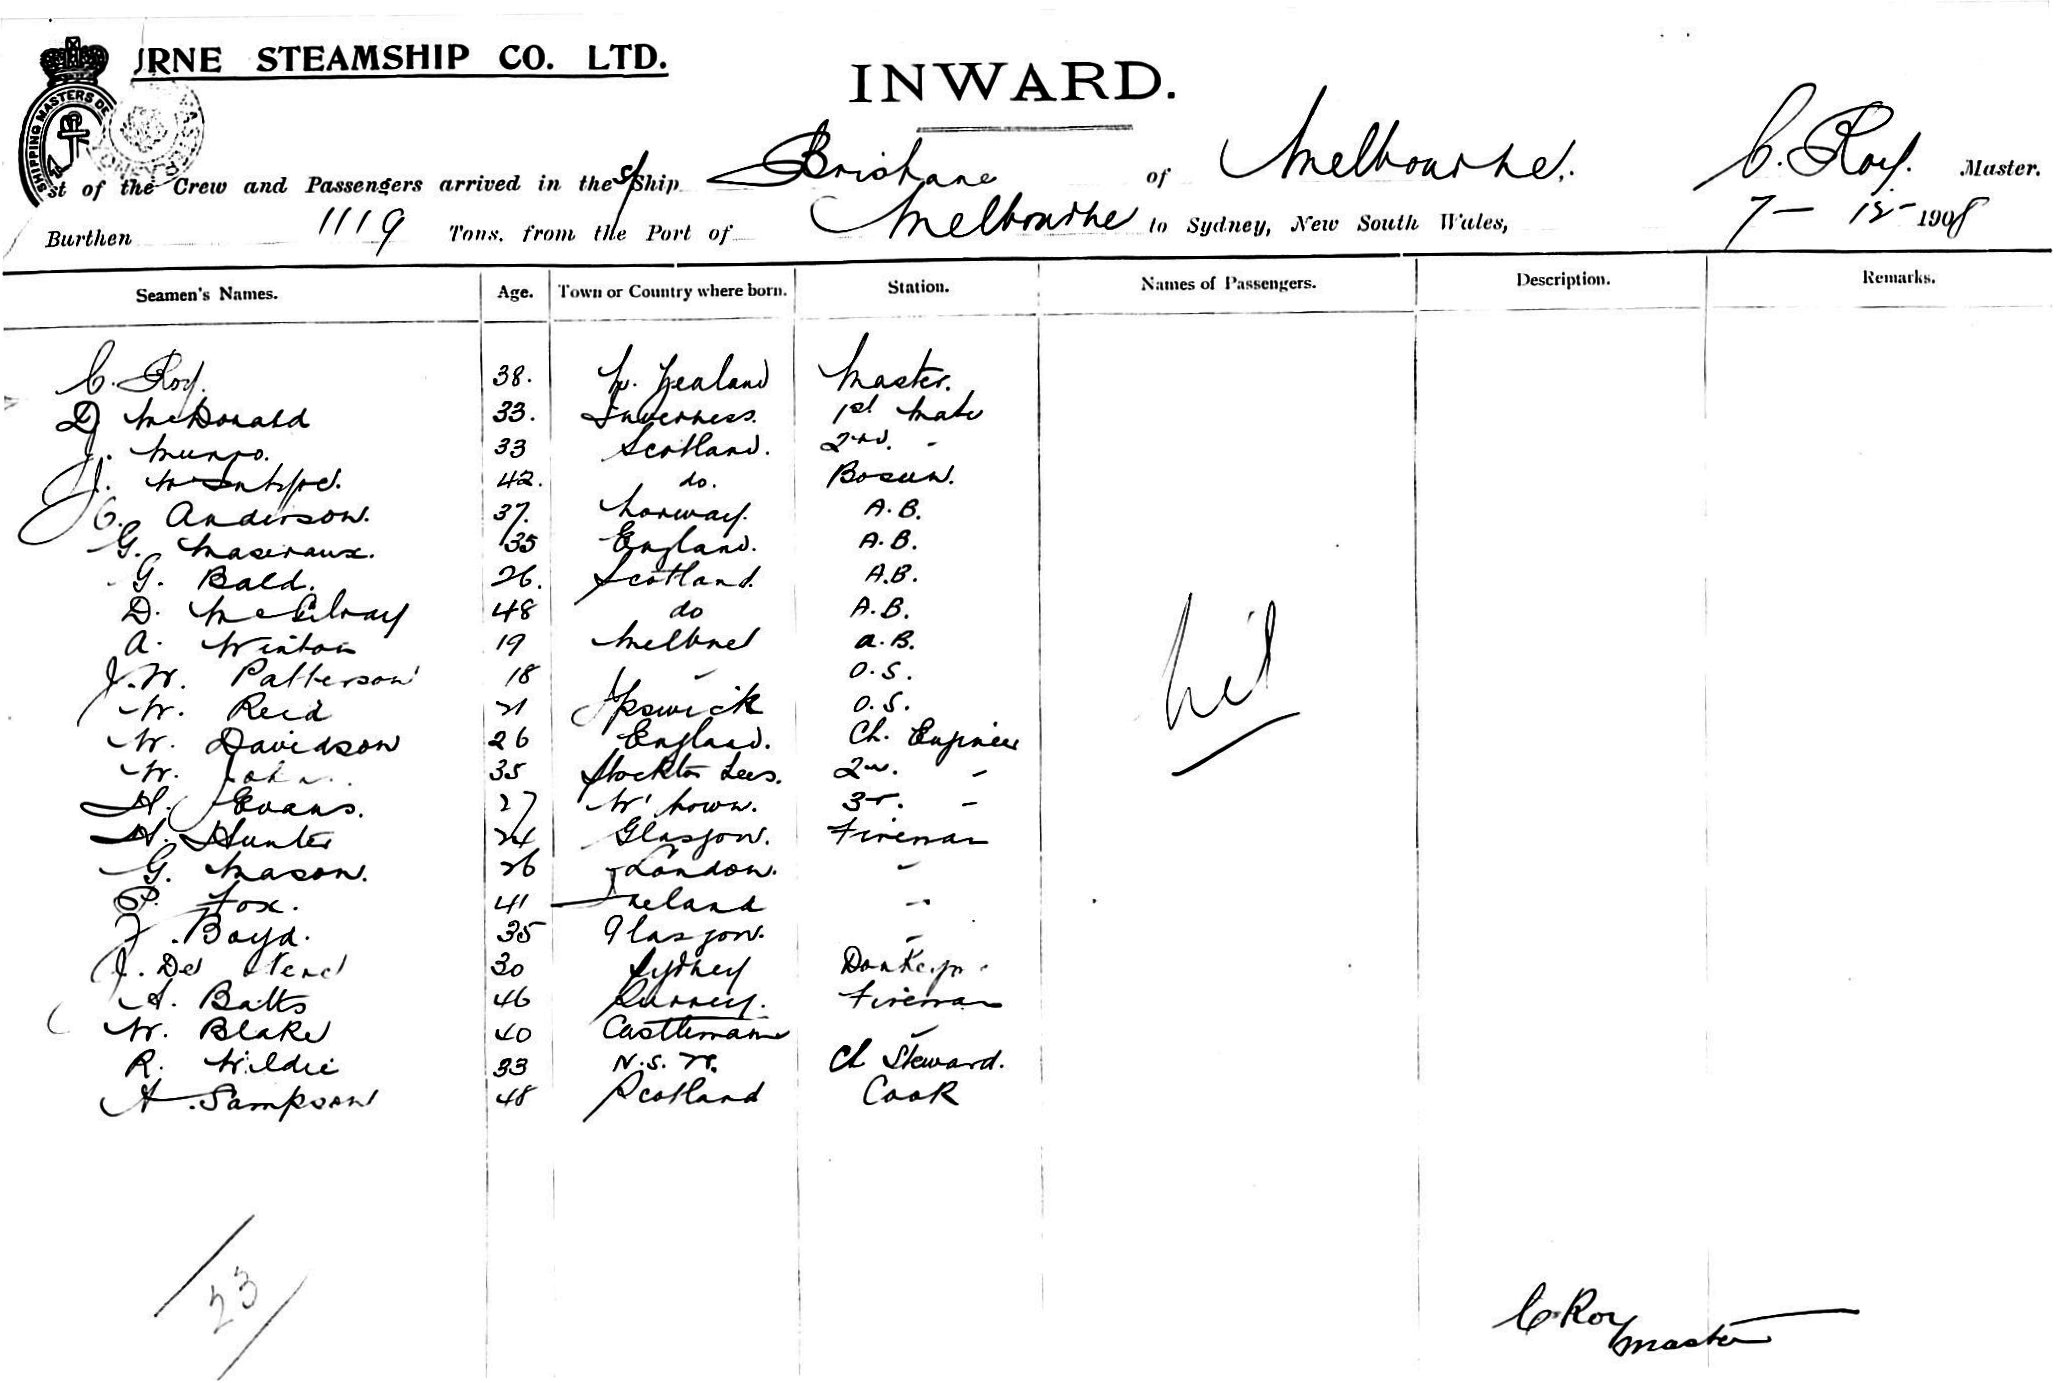 URNE STEAMSHIP CO. LTD.
INWARD.
SHIPPING MASTERS DE
st of the Crew and Passengers arrived in the S/Ship Brisbane of Melbourne. C. Roy. Master.
Burthen 1119 Tons, from the Port of Melbourne to Sydney, New South Wales, 7 - 12 - 1908
Seamen's Names. Age. Town or Country where born. Station. Names of Passengers. Description. Remarks.
C. Roy. 38. N. Zealand Master.
D McDonald 33. Inverness. 1st Mate
J. Munro. 33 Scotland. 2nd. "
J. 42. do. Bosun.
C. Anderson. 37. Norway. A.B.
G. 35 England. A.B.
G. Bald. 26. Scotland. A.B.
D. McGilvray 48 do A.B.
A. Winton 19 Melbne a.B.
J.W. Patterson 18 " O.S.
W. Reid 21 Ipswick O.S.
W. Davidson 26 England. Ch. Engineer
W. John 35 Stockton Tees. 2nd. "
H. Evans. 27 W'town. 3r. "
H. Hunter 24 Glasgow. Fireman
G. Mason. 26 London. "
P. Fox. 41 Ireland "
F. Boyd. 35 Glasgow. "
J. De 30 Sydney Donkeyn.
A. Batts 46 Surrey. Fireman
W. Blake 40 Castlemaine "
R. Wildie 33 N.S.W. Ch Steward.
A. Sampson 48 Scotland Cook
Nil
23
C. Roy
Master